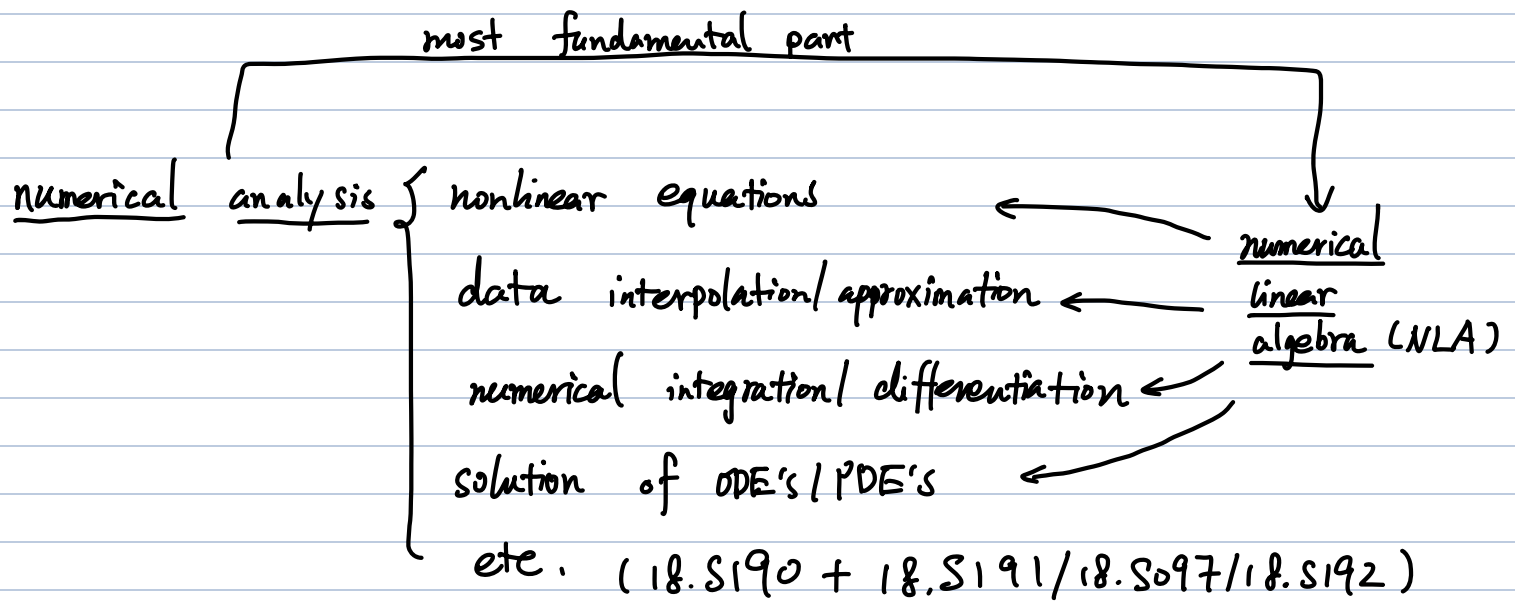 most fundamental part
numerical analysis { nonlinear equations
data interpolation/approximation
numerical integration/differentiation
solution of ODE's/PDE's
etc. (18.S190 + 18.S191/18.S097/18.S192)
numerical
linear
algebra (NLA)